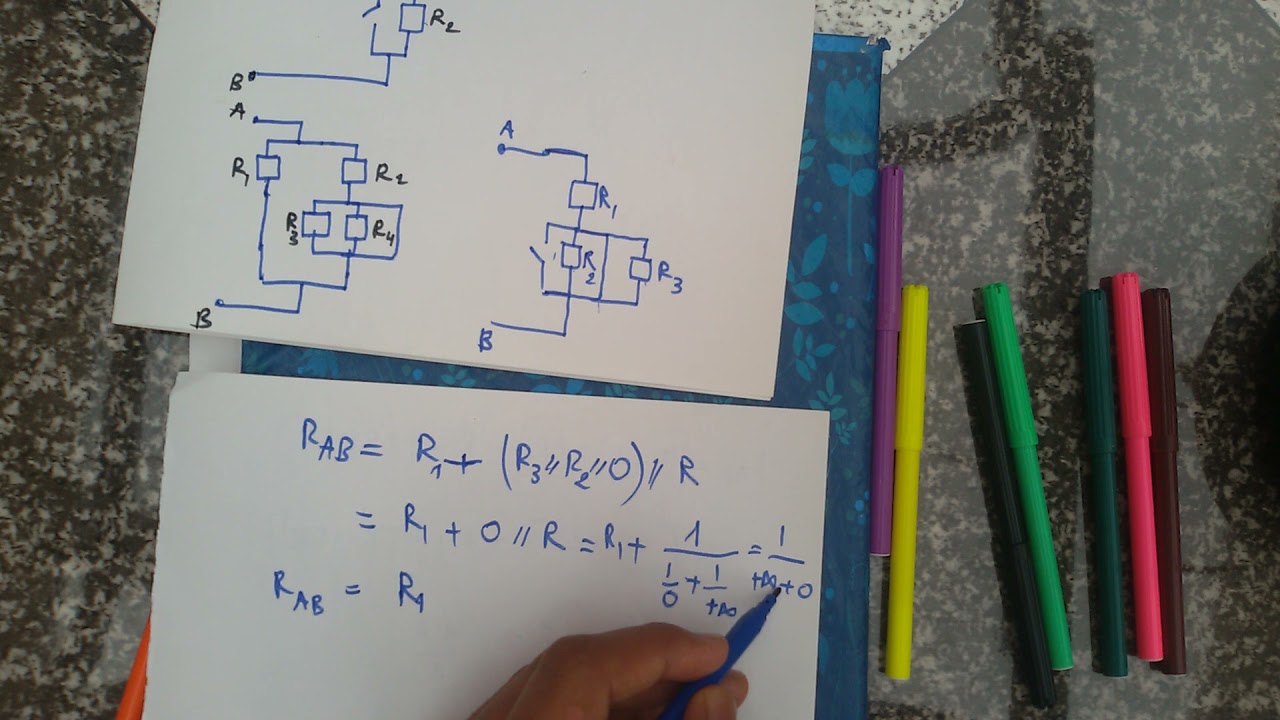 R2
B
A
R1 R2
R3 R4
B
A
R1
R2 R3
B
RAB = R1 + (R3 // R2 // 0) // R
= R1 + 0 // R = R1 + 1/(1/0 + 1/+∞) = 1/(+∞ + 0)
RAB = R1